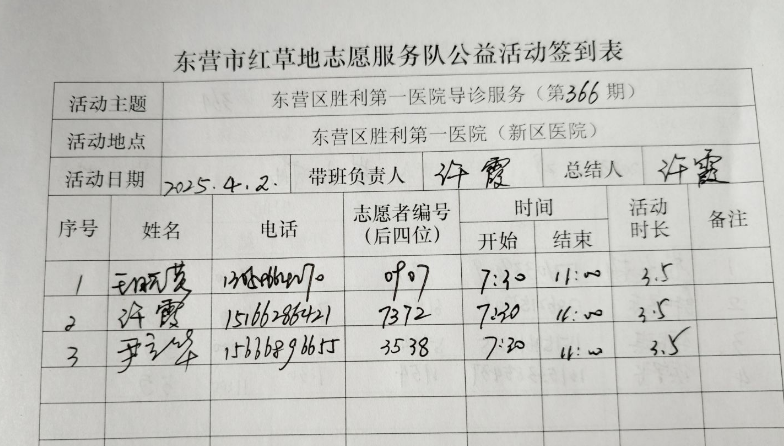 东营市红草地志愿服务队公益活动签到表
活动主题 东营区胜利第一医院导诊服务（第366期）
活动地点 东营区胜利第一医院（新区医院）
活动日期 2025.4.2. 带班负责人 许霞 总结人 许霞
序号 姓名 电话 志愿者编号（后四位） 时间 开始 结束 活动时长 备注
1 0907 7:30 11:00 3.5
2 许霞 15166286421 7372 7:30 11:00 3.5
3 3538 7:30 11:00 3.5